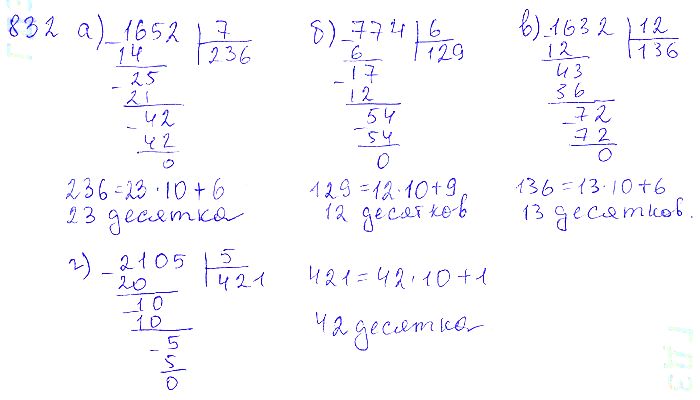 832 а) -1652 | 7
14 | 236
- 25
21
- 42
42
0
236=23·10+6
23 десятка
б) -774 | 6
6 | 129
- 17
12
- 54
54
0
129=12·10+9
12 десятков
в) -1632 | 12
12 | 136
43
36
- 72
72
0
136=13·10+6
13 десятков.
г) -2105 | 5
20 | 421
- 10
10
- 5
5
0
421=42·10+1
42 десятка
ГДЗ